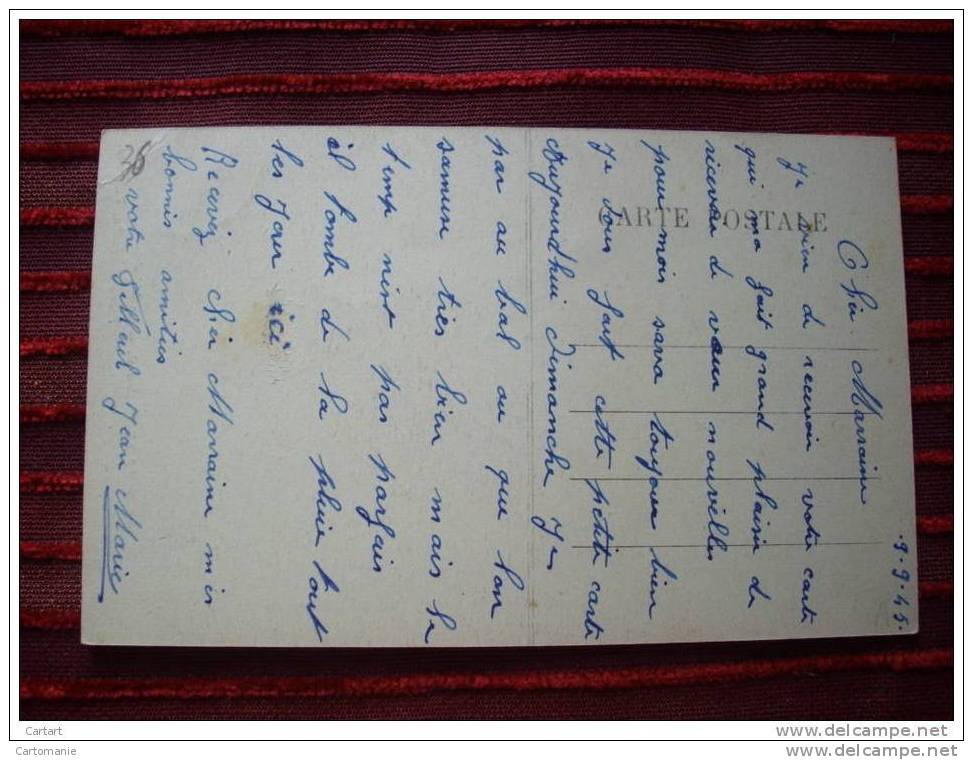 9.9.45.
Cher Marraine
Je vien de recevoir votre carte
qui ma fait grand plaisir de
recevoir de vaux nouvelles
pour mois sava toujour bien
Je vous fait cette petite carte
Aujourd'hui Dimanche Je
par au bal ou que lon
samuse tres bien mais le
temp nest pas parfais
il tombe de la pluie tout
les Jour ici
Recevez Cher Marraine mes
bonnes amities
votre Filleul Jean Marie
CARTE POSTALE
Cartart
Cartomanie
www.delcampe.net
www.delcampe.net